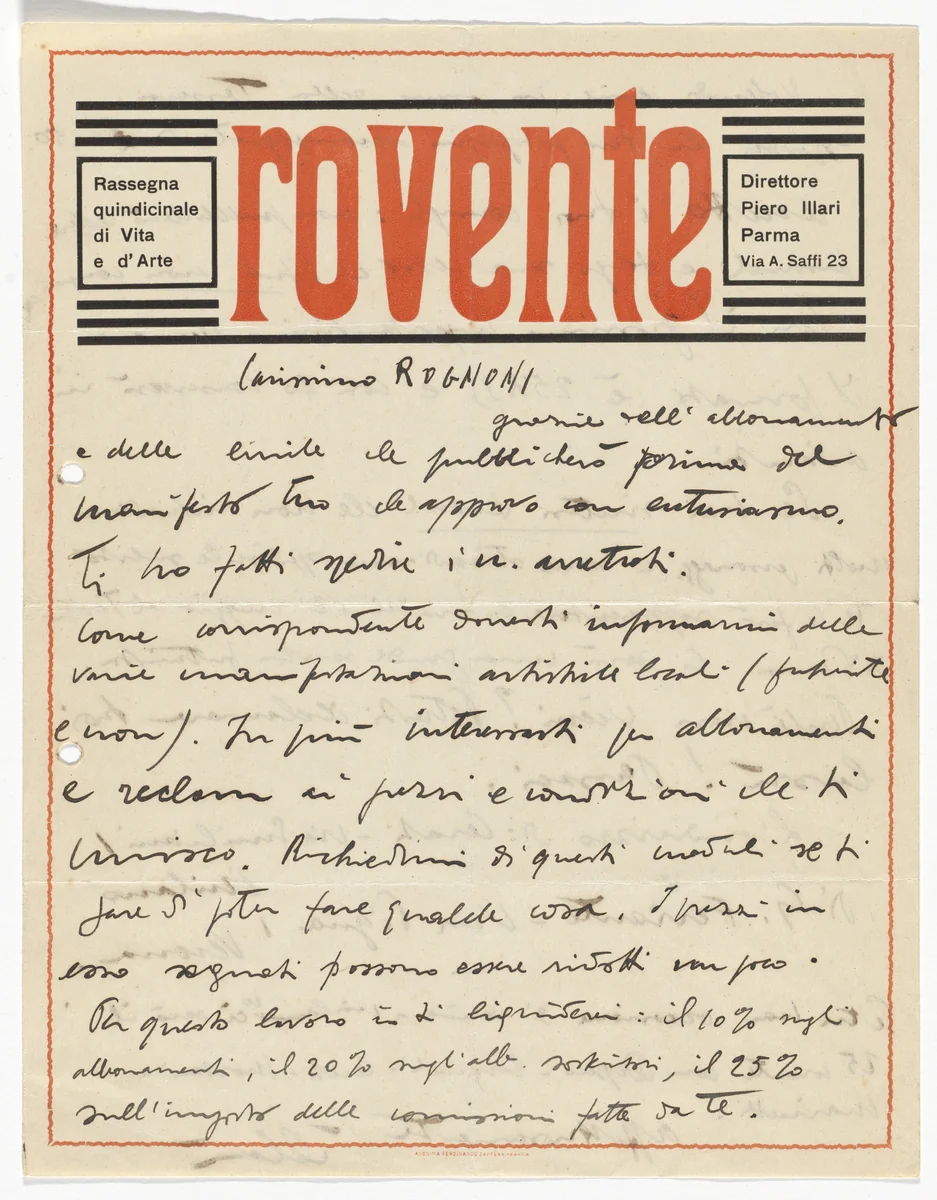 rovente
Rassegna
quindicinale
di Vita
e d'Arte
Direttore
Piero Illari
Parma
Via A. Saffi 23
Carissimo ROGNONI
grazie dell' abbonamento
e delle che pubblicherò prima del
manifesto tuo che approvo con entusiasmo.
Ti ho fatti spedire i n. arretrati.
Come corrispondente dovresti informarmi delle
varie manifestazioni artistiche locali (futuriste
e non). In più interessarti per abbonamenti
e reclam ai prezzi e condizioni che ti
unisco. Richiedimi di questi moduli se ti
pare di poter fare qualche cosa. I prezzi in
esso segnati possono essere ridotti un poco.
Per questo lavoro io ti liquiderei: il 10% sugli
abbonamenti, il 20% sugli abb. sostenitori, il 25%
sull'importo delle commissioni fatte da te.